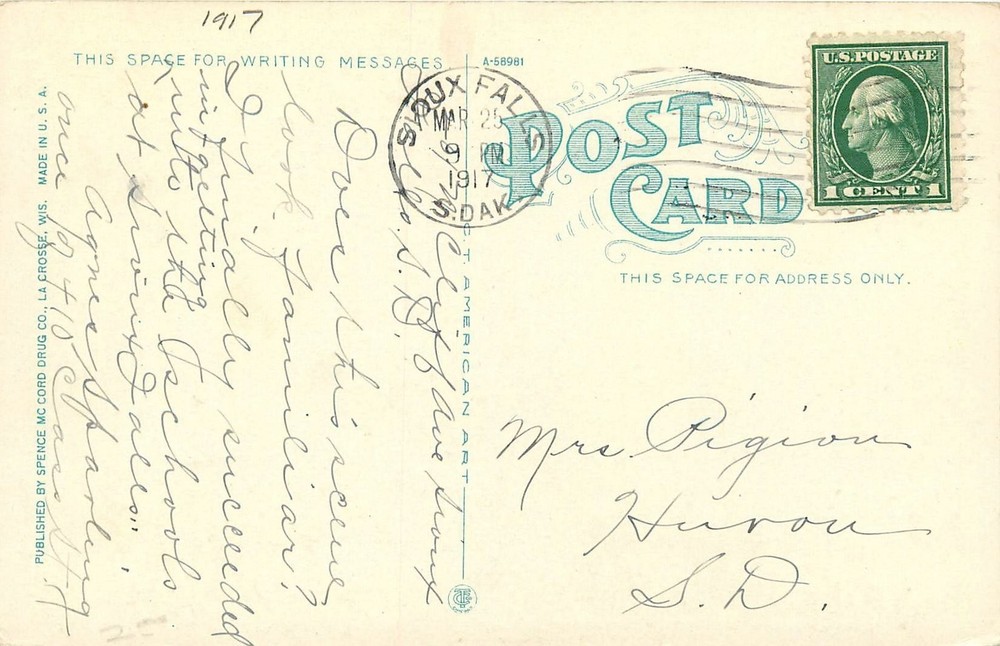 1917
THIS SPACE FOR WRITING MESSAGES
A-58981
SIOUX FALLS
MAR 25
9 PM
1917
S. DAK.
POST
CARD
U.S. POSTAGE
1 CENT 1
THIS SPACE FOR ADDRESS ONLY.
Ave Sioux
Falls S.D.
Does this scene
look familiar?
I finally succeeded
in getting
into the schools
at Sioux Falls.
Agnes Sparling
once of 410
Mrs. Pigion
Huron
S. D.
C.T. AMERICAN ART
PUBLISHED BY SPENCE MC CORD DRUG CO., LA CROSSE, WIS. MADE IN U. S. A.